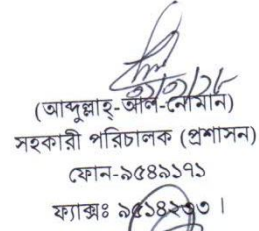 (আব্দুল্লাহ্-আল-নোমান)
সহকারী পরিচালক (প্রশাসন)
ফোন-৯৫৪৯১৭১
ফ্যাক্সঃ